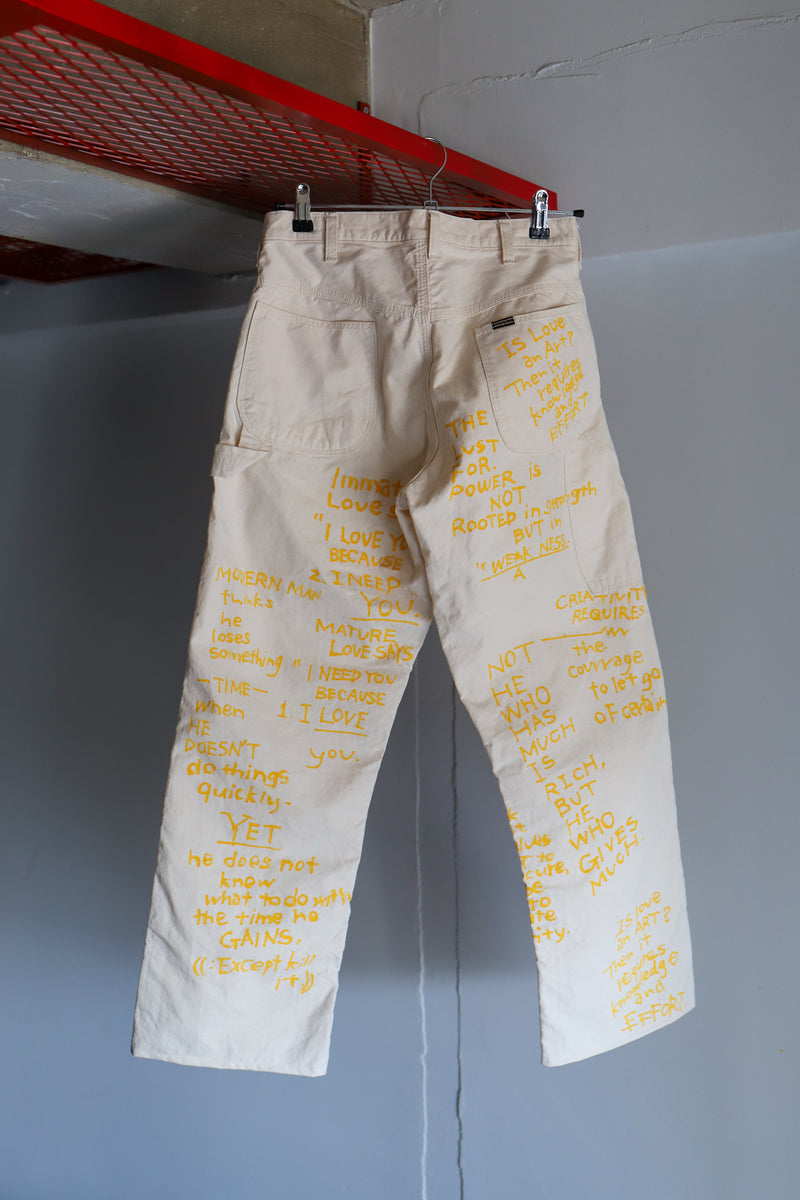 Is Love
an Art?
Then it
requires
knowledge
and
EFFORT
THE
LUST
FOR.
POWER is
NOT
ROOTED in Strength
BUT in
"WEAK NESS.
A
Love
"I LOVE
BECAUSE
2. I NEED
YOU.
MATURE
LOVE SAYS
"I NEED YOU
BECAUSE
1. I LOVE
you.
MODERN MAN
thinks
he
loses
something
-TIME-
when
HE
DOESN'T
do things
quickly.
YET
he does not
know
what to do
the time he
GAINS,
((:Except kill
it))
CREATIVITY
REQUIRES
the
courage
to let go
of
NOT
HE
WHO
HAS
MUCH
IS
RICH,
BUT
HE
WHO
GIVES
MUCH.
to
to
Is love
an ART?
Then it
requires
knowledge
and
EFFORT